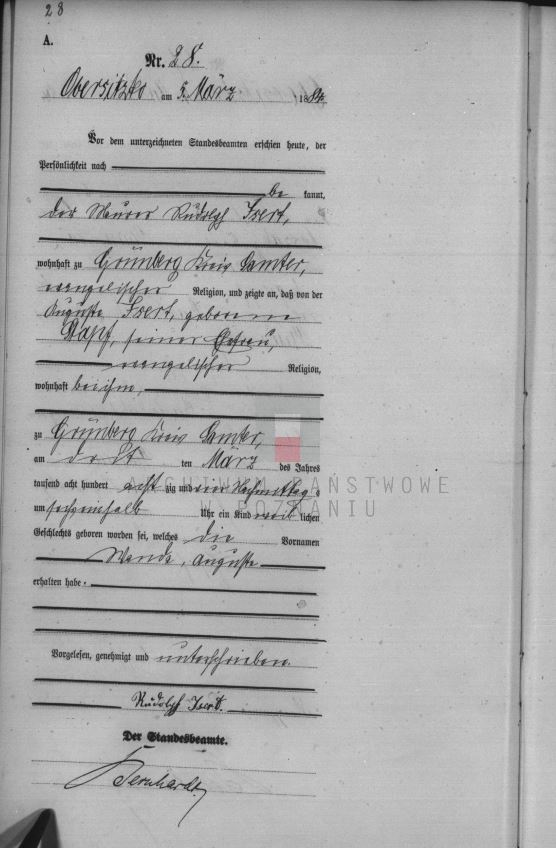 28
A.
Nr. 28.
Obersitzko am 5. März 1884
Vor dem unterzeichneten Standesbeamten erschien heute, der
Persönlichkeit nach
be kannt,
der Maurer Rudolph Isert,
wohnhaft zu Grünberg Kreis Samter,
evangelischer Religion, und zeigte an, daß von der
Auguste Isert, geborene
Stapf, seiner Ehefrau,
evangelischer Religion,
wohnhaft bei ihm,
zu Grünberg Kreis Samter,
am ten März des Jahres
tausend acht hundert acht zig und vier Nachmittags
um Uhr ein Kind weib lichen
Geschlechts geboren worden sei, welches die Vornamen
Wanda, Auguste
erhalten habe.
Vorgelesen, genehmigt und unterschrieben.
Rudolph Isert.
Der Standesbeamte.
Bernhardt
ARCHIWUM PAŃSTWOWE
W POZNANIU